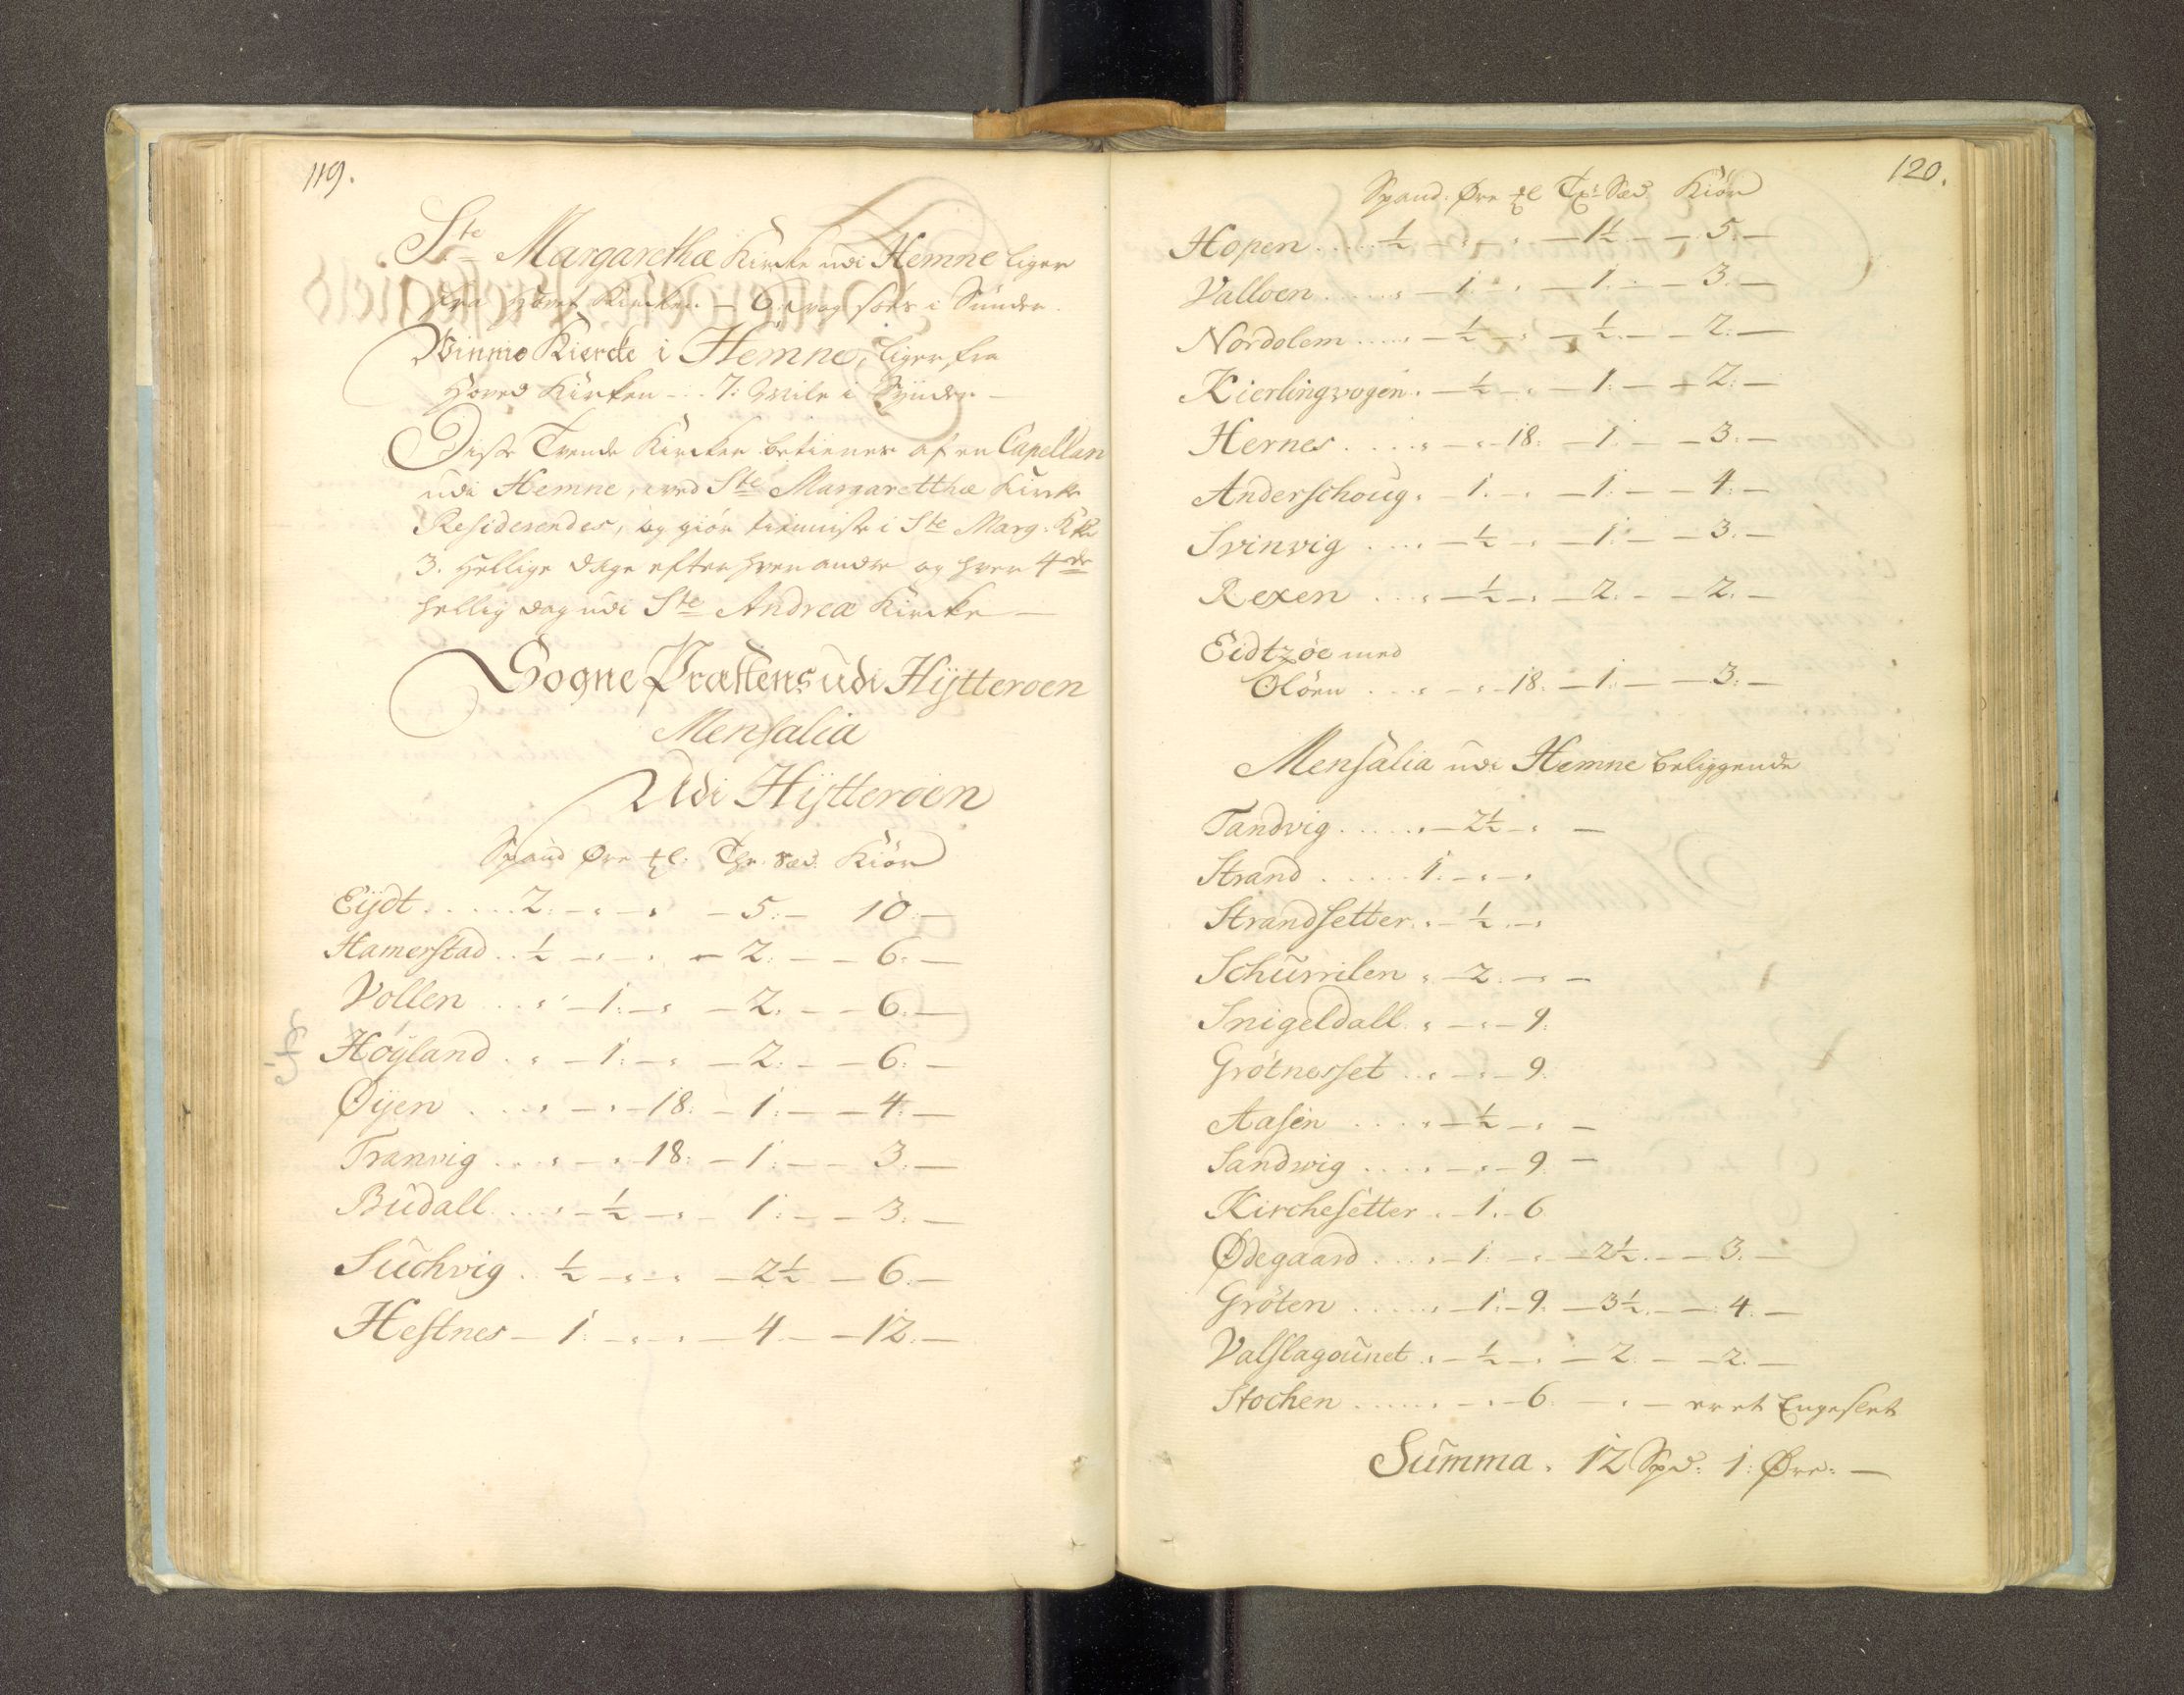 119.
Ste Margarethæ Kircke udi Hemne liger
fra Hoved Kircken – 6. i Sünder.
Winnie Kiercke i Hemne, liger fra
Hoved Kircken – 7: Mile i Sünder –
Disse Trende Kircker betienes af en Capellan
udi Hemne, ved Ste Margaretthæ Kircke
Residerendes, og giör tienniste i Ste Marg: K
3. Hellige Dage efter hver andre og hver 4de
hellig dag udi Ste Andreæ Kircke –
Sogne Præstens udi Hÿtteröen
Mensalia
Udi Hÿtteröen
Spand Øre Tdr. Sæd. Kiör
Eÿdt . . . . . 2: – „ – „ – 5: – 10: –
Hamerstad . . ½ – „ – „ – 2: – – 6: –
Vollen . . . „ – 1: – „ – 2. – – 6: –
Höÿland . . „ – 1: – „ – 2: – – 6: –
Øÿen . . . . „ – „ – 18: – 1: – – 4: –
Tranvig . . . „ – „ – 18: – 1: – – 3: –
Büdall . . . . „ – ½ – „ – 1: – – 3: –
Süchvig . . ½ – „ – „ – 2½ – 6: –
Hestnes – 1: – „ – „ – 4 – – 12. –
120.
Spand: Øre Tdr: Sæd. Kiör
Hopen . . . . . ½ – „ – „ – 1½ – – 5: –
Valloen . . . . . „ – 1: – „ – 1: – – 3: –
Nordolem . . . . . „ – ½ – „ – ½. – – 2: –
Kierlingvogen . „ – ½ – „ – 1: – – 2: –
Hernes . . . . . „ – „ – 18: – 1: – – 3: –
Anderschoug „ – 1: – „ – 1: – – 4: –
Svinvig . . . . „ – ½ – „ – 1: – – 3: –
Rexen . . . . „ – ½ – „ – 2: – – 2: –
Eidtzöe med
Ölöen . . . . „ – „ – 18: – 1: – – 3: –
Mensalia udi Hemne beliggende
Tandvig . . . . . . „ – 2½ – „ –
Strand . . . . . . 1: – „ – „
Strandsetter . „ – ½ – „
Schürrilen „ – 2: – „ –
Snigeldall . „ – „ – 9:
Grötnesset . . „ – „ – 9:
Aasen . . . . „ – ½ – „ –
Sandwig . . . . „ – „ – 9. –
Kirchesetter . „ – 1. – 6
Ødegaard . . . . „ – 1: – „ – 2½. – – 3. –
Gröten . . . . . . „ – 1: – 9: – 3½. – – 4. –
Valslagoünet . „ – ½ – „ – 2. – – 2. –
Stochen . . . . . . „ – „ – 6 – „ – er et Engeslet
Sümma . 12 Spd: 1: Øre: –